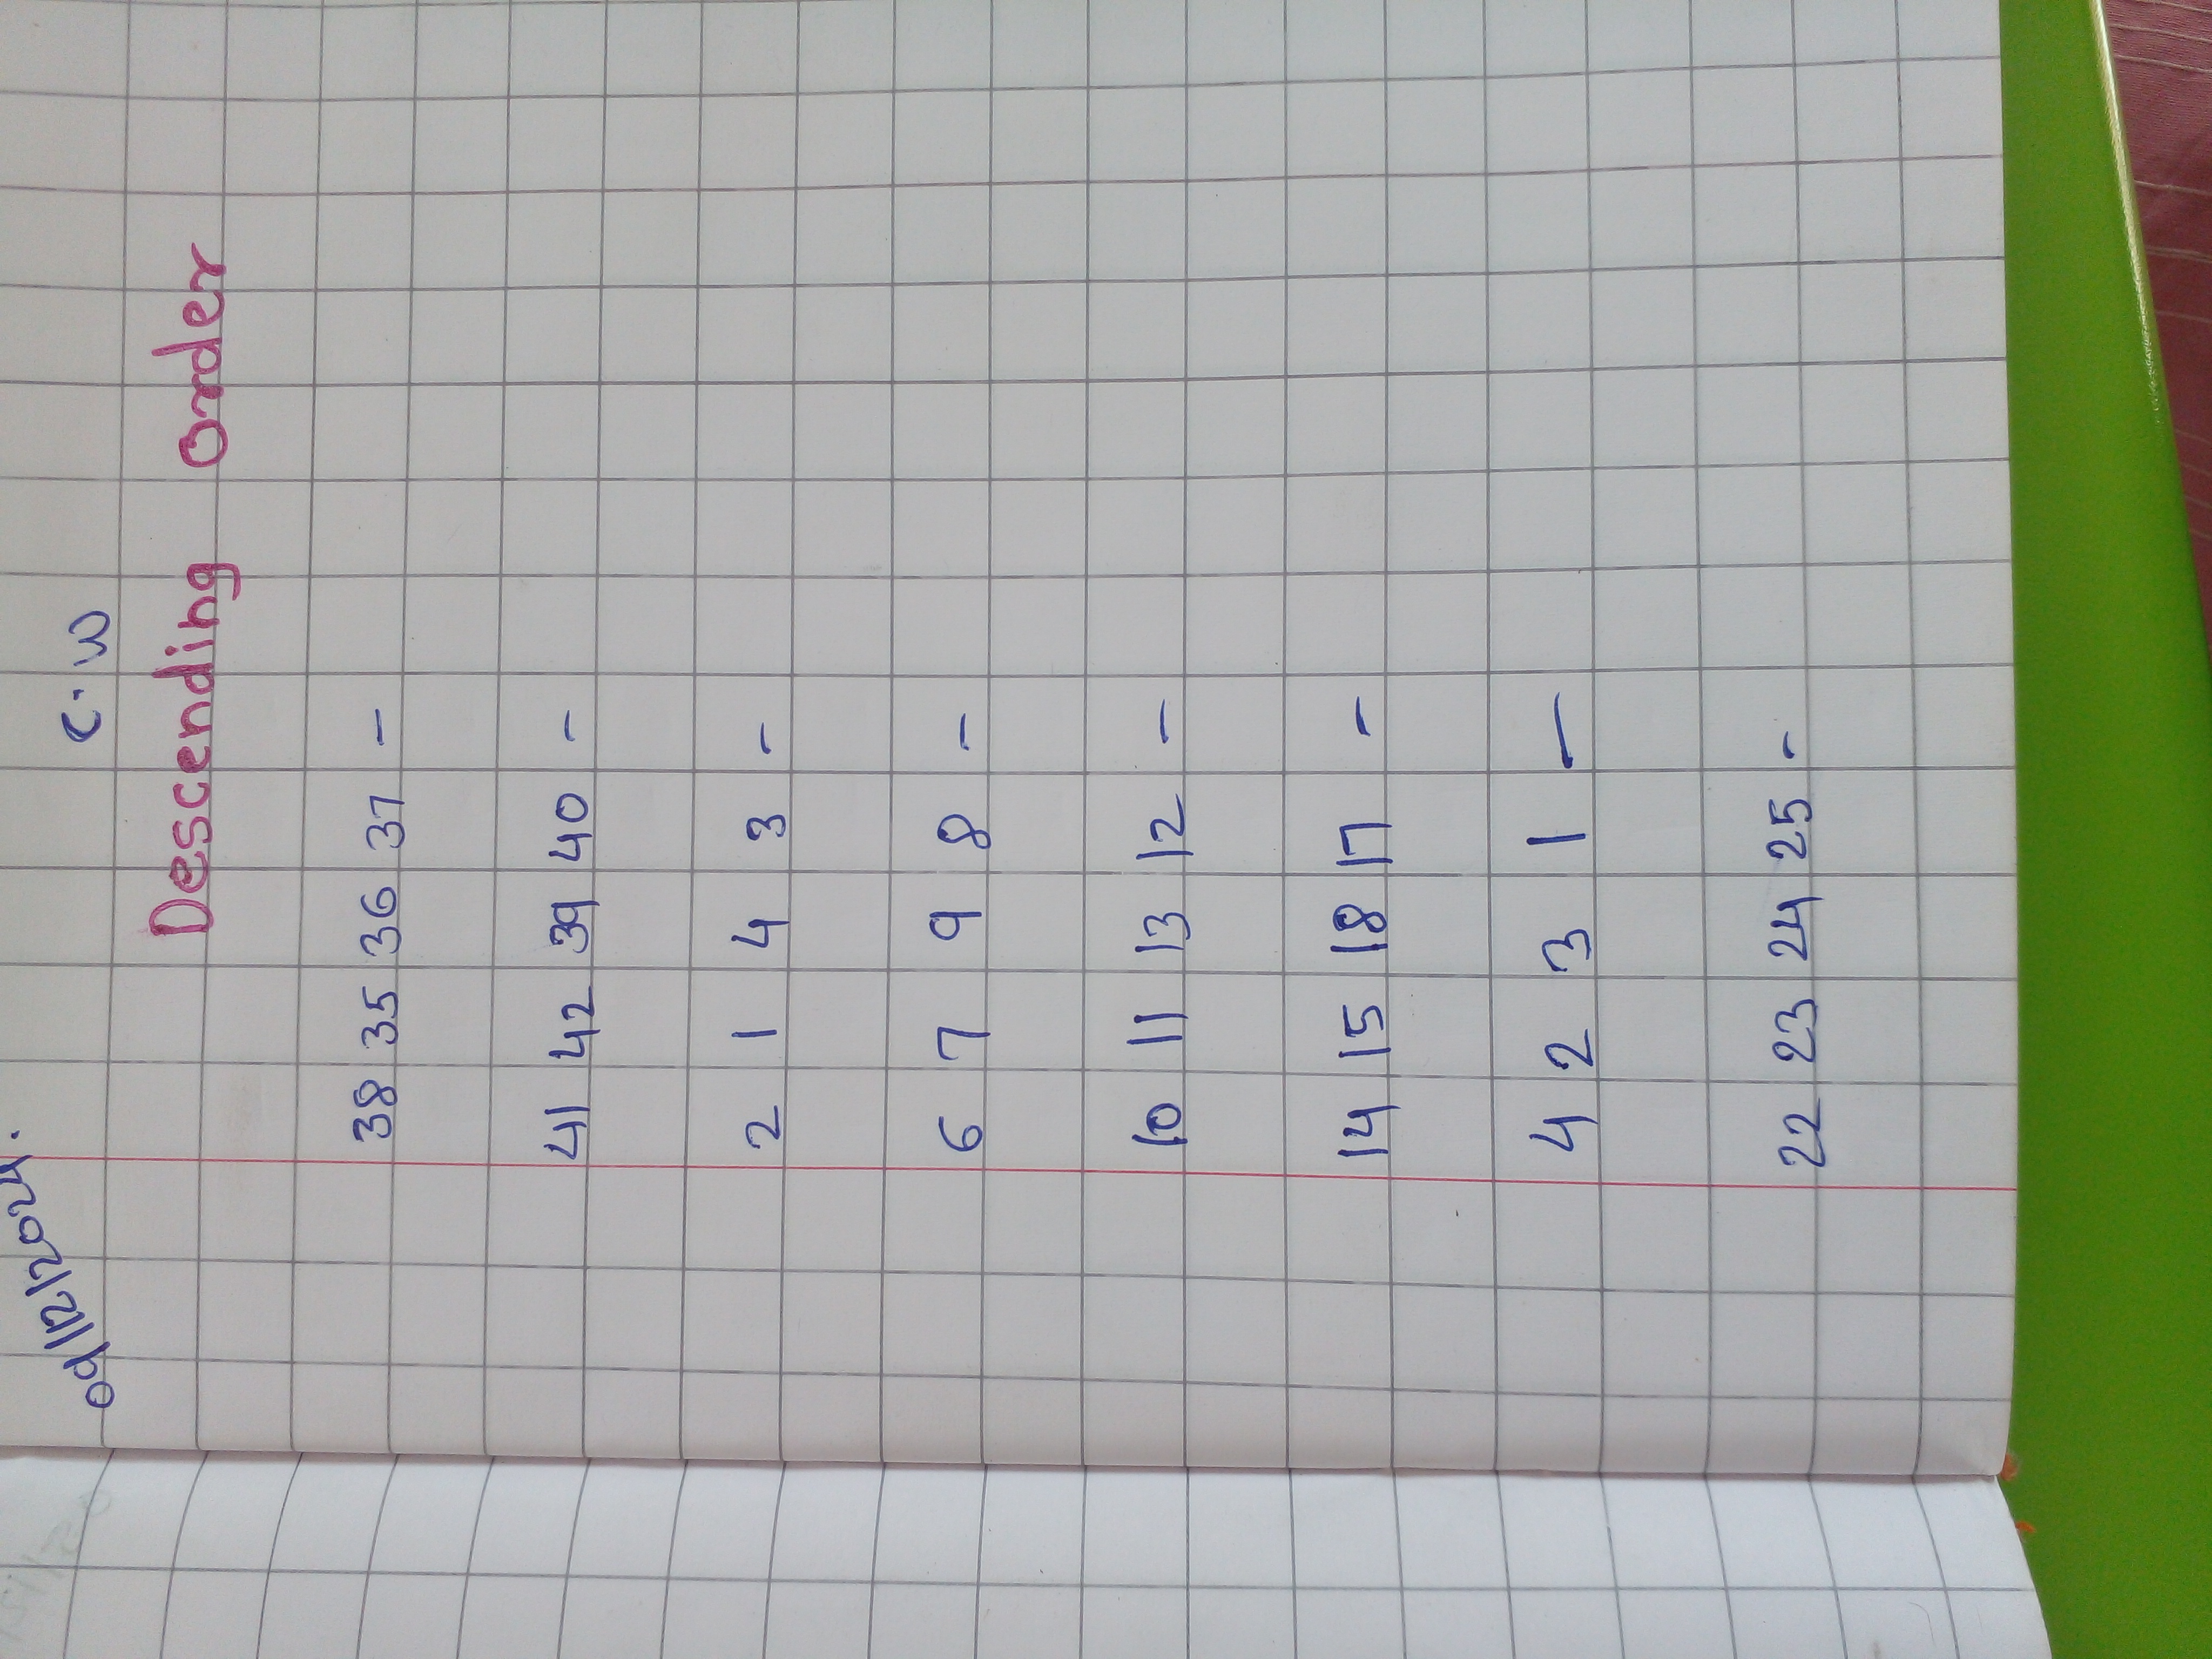 09/12/2024.
C.W
Descending order
38 35 36 37 -
41 42 39 40 -
2 1 4 3 -
6 7 9 8 -
10 11 13 12 -
14 15 18 17 -
4 2 3 1 -
22 23 24 25 -